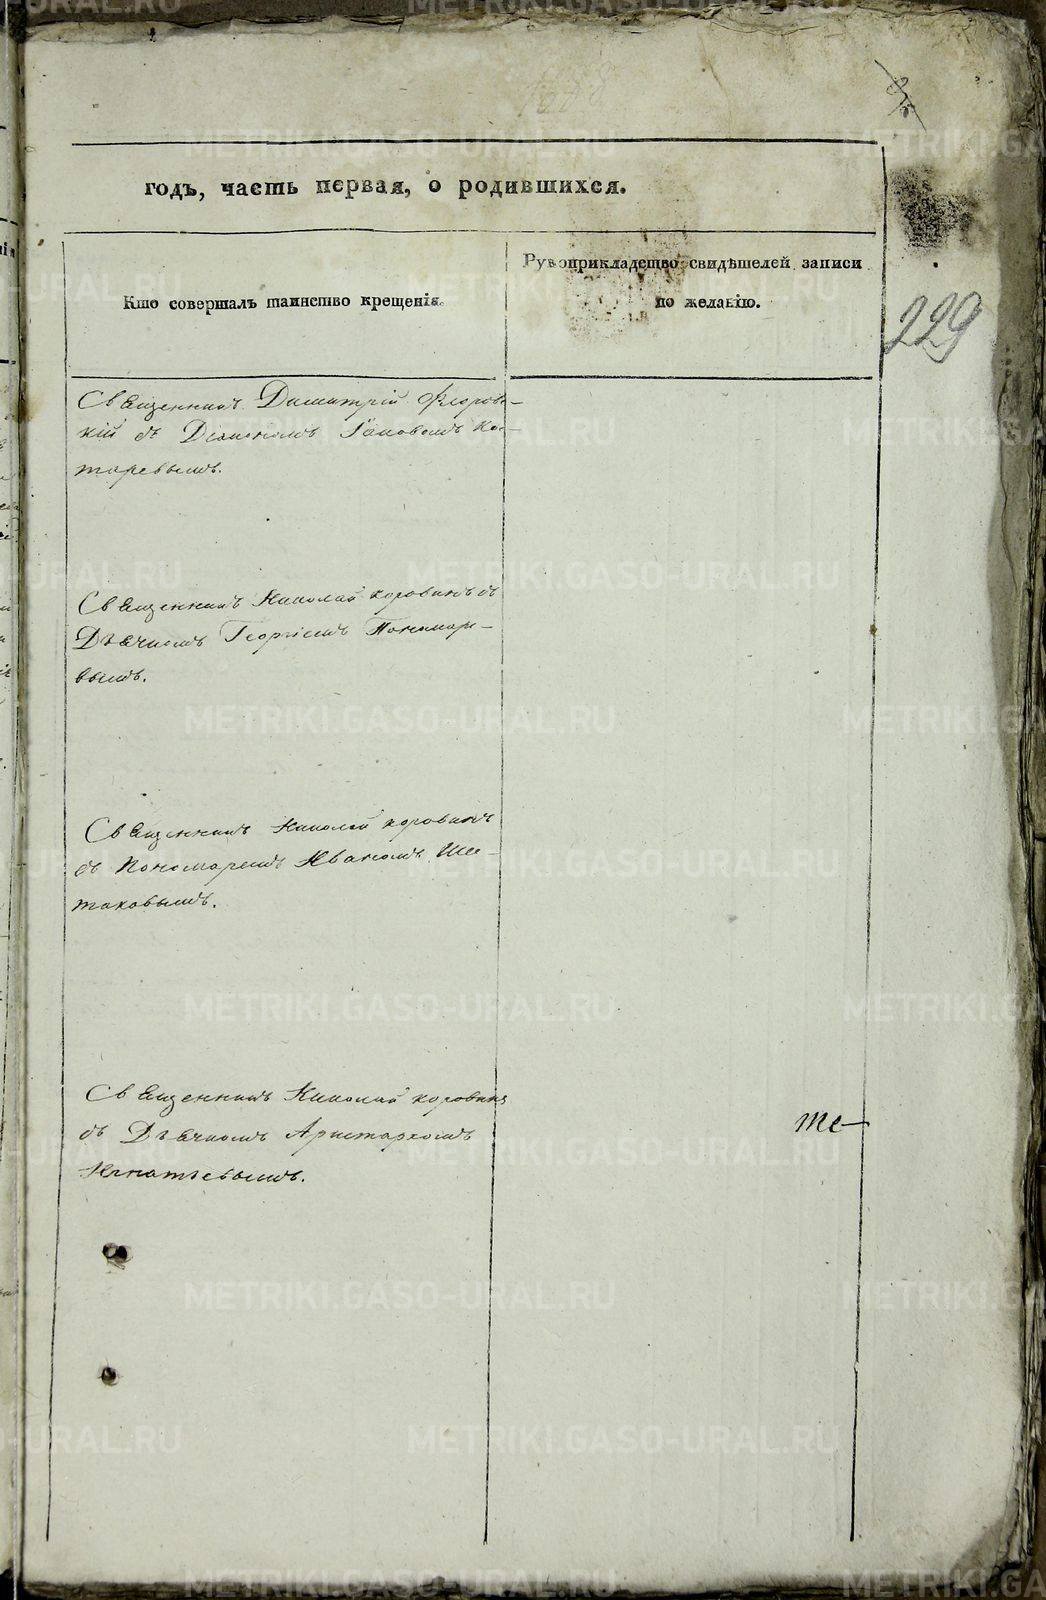 годъ, часть первая, о родившихся.
Кто совершалъ таинство крещенія.
Рукоприкладство свидѣтелей записи
по желанію.
229
Священникъ Димитрій Флоровс-
кій съ Діакономъ Іаковомъ Ко-
таревымъ.
Священникъ Николай Коровинъ съ
Дьячкомъ Георгіемъ Пономаре-
вымъ.
Священникъ Николай Коровинъ
съ Пономаремъ Иваномъ Шес-
таковымъ.
Священникъ Николай Коровинъ
съ Дьячкомъ Аристархомъ
Игнатьевымъ.
METRIKI.GASO-URAL.RU